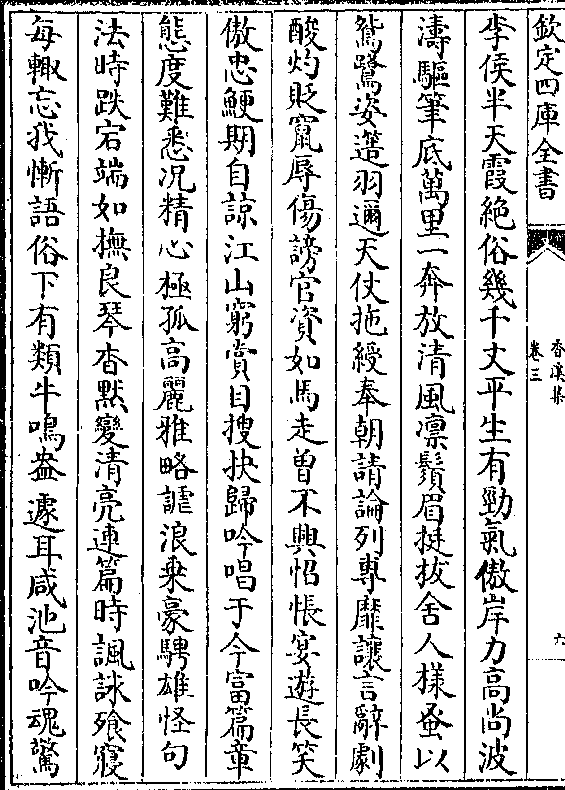 欽定四庫全書
香溪集
卷三
六
李侯半天霞絶俗幾千丈平生有勁氣傲岸力高尚波
濤驅筆底萬里一奔放清風凛鬚眉挺拔舍人樣蚤以
鴛鷺姿簉羽邇天仗拖綬奉朝請論列專靡讓言辭劇
酸灼貶竄辱傷謗官資如馬走曽不興怊悵宴遊長笑
傲忠鯁期自諒江山窮賞目搜抉歸吟唱于今富篇章
態度難悉况精心極孤高麗雅略謔浪乗豪騁雄怪句
法時跌宕端如撫良琴杳黙變清亮連篇時諷詠飱寢
每輙忘我慚語俗下有類牛鳴盎遽耳咸池音吟魂驚